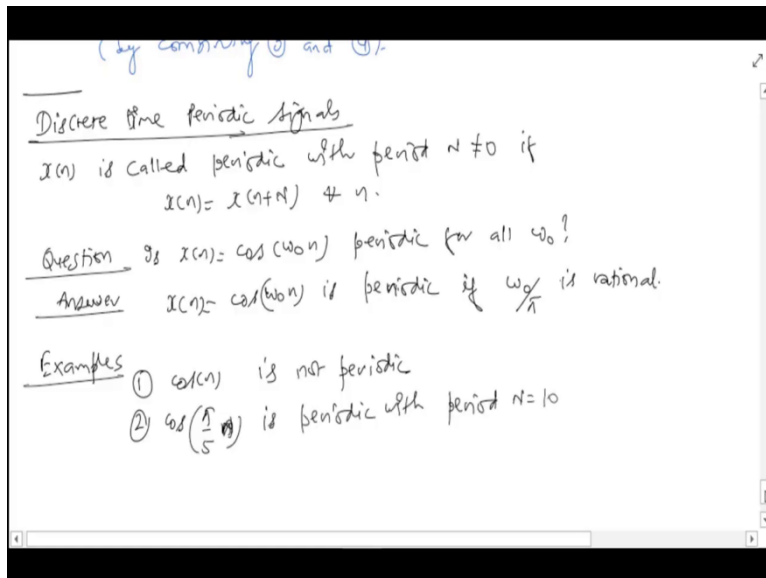 (by combining ③ and ④).
Discrete time Periodic Signals
x(n) is called periodic with period N ≠ 0 if
x(n) = x(n+N) ∀ n.
Question Is x(n) = cos(ω₀n) periodic for all ω₀?
Answer x(n) = cos(ω₀n) is periodic if ω₀/π is rational.
Examples ① cos(n) is not periodic
② cos(π/5 n) is periodic with period N = 10